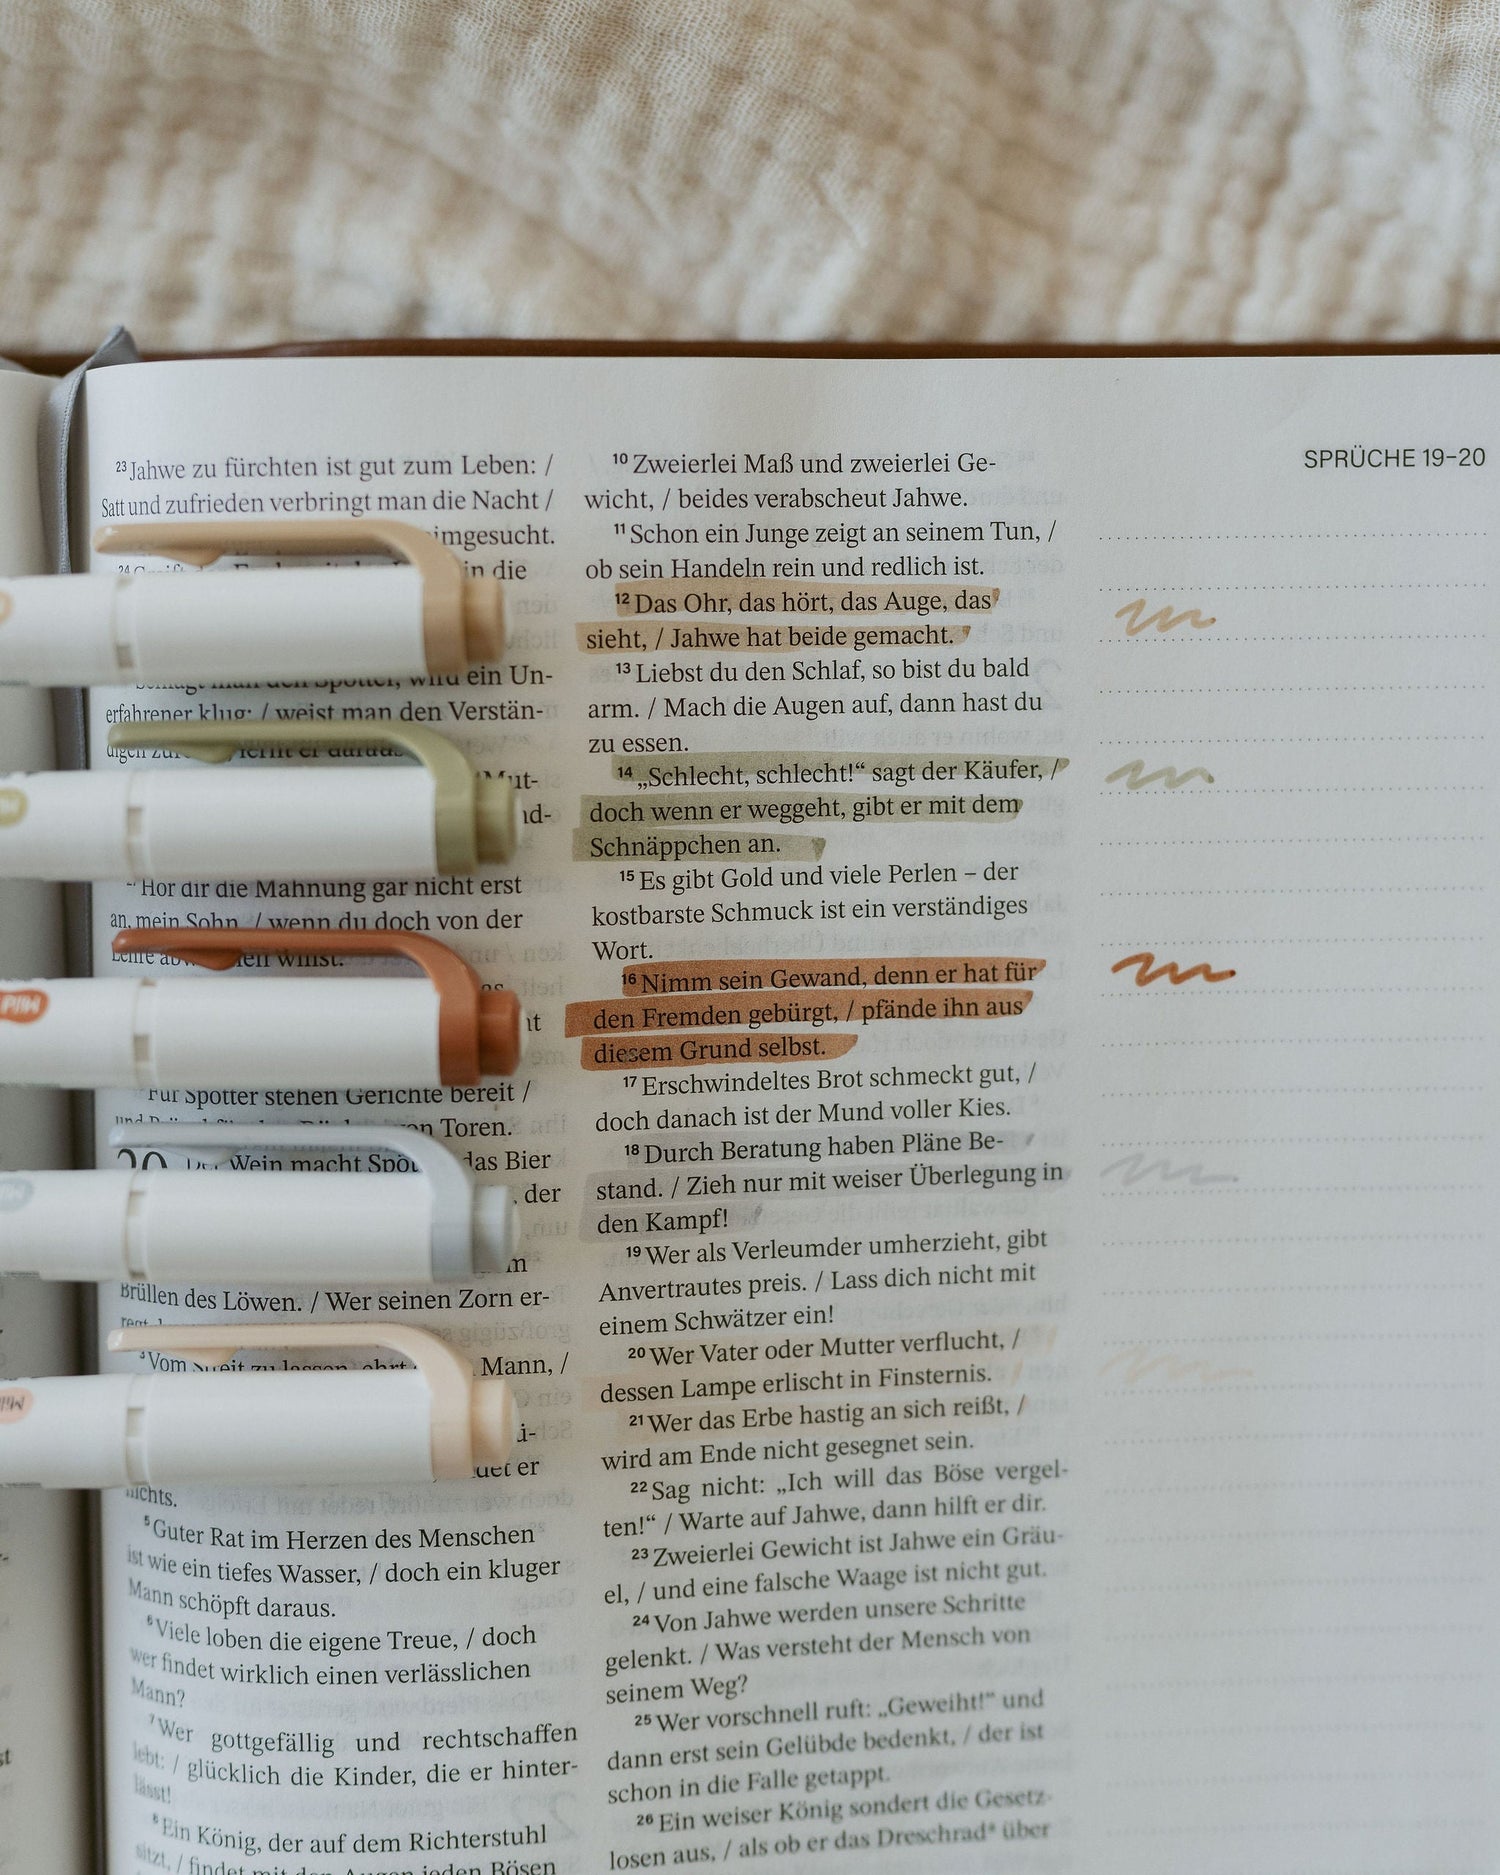 SPRÜCHE 19–20
²³Jahwe zu fürchten ist gut zum Leben: /
Satt und zufrieden verbringt man die Nacht /
imgesucht.
in die
ein Un-
erfahrener klug: / weist man den Verstän-
Hör dir die Mahnung gar nicht erst
an, mein Sohn, / wenn du doch von der
Für Spötter stehen Gerichte bereit /
von Toren.
20 Der Wein macht das Bier
der
Brüllen des Löwen. / Wer seinen Zorn er-
³Vom Mann, /
er
nichts.
⁵Guter Rat im Herzen des Menschen
ist wie ein tiefes Wasser, / doch ein kluger
Mann schöpft daraus.
⁶Viele loben die eigene Treue, / doch
wer findet wirklich einen verlässlichen
Mann?
⁷Wer gottgefällig und rechtschaffen
lebt: / glücklich die Kinder, die er hinter-
lässt!
⁸Ein König, der auf dem Richterstuhl
sitzt, / findet mit den Augen jeden Bösen
¹⁰Zweierlei Maß und zweierlei Ge-
wicht, / beides verabscheut Jahwe.
¹¹Schon ein Junge zeigt an seinem Tun, /
ob sein Handeln rein und redlich ist.
¹²Das Ohr, das hört, das Auge, das
sieht, / Jahwe hat beide gemacht.
¹³Liebst du den Schlaf, so bist du bald
arm. / Mach die Augen auf, dann hast du
zu essen.
¹⁴„Schlecht, schlecht!“ sagt der Käufer, /
doch wenn er weggeht, gibt er mit dem
Schnäppchen an.
¹⁵Es gibt Gold und viele Perlen – der
kostbarste Schmuck ist ein verständiges
Wort.
¹⁶Nimm sein Gewand, denn er hat für
den Fremden gebürgt, / pfände ihn aus
diesem Grund selbst.
¹⁷Erschwindeltes Brot schmeckt gut, /
doch danach ist der Mund voller Kies.
¹⁸Durch Beratung haben Pläne Be-
stand. / Zieh nur mit weiser Überlegung in
den Kampf!
¹⁹Wer als Verleumder umherzieht, gibt
Anvertrautes preis. / Lass dich nicht mit
einem Schwätzer ein!
²⁰Wer Vater oder Mutter verflucht, /
dessen Lampe erlischt in Finsternis.
²¹Wer das Erbe hastig an sich reißt, /
wird am Ende nicht gesegnet sein.
²²Sag nicht: „Ich will das Böse vergel-
ten!“ / Warte auf Jahwe, dann hilft er dir.
²³Zweierlei Gewicht ist Jahwe ein Gräu-
el, / und eine falsche Waage ist nicht gut.
²⁴Von Jahwe werden unsere Schritte
gelenkt. / Was versteht der Mensch von
seinem Weg?
²⁵Wer vorschnell ruft: „Geweiht!“ und
dann erst sein Gelübde bedenkt, / der ist
schon in die Falle getappt.
²⁶Ein weiser König sondert die Gesetz-
losen aus, / als ob er das Dreschrad* über